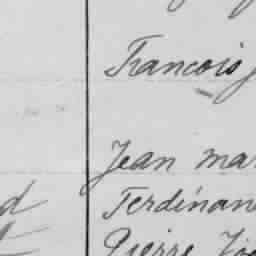 Francois
Jean mar
Ferdinan
Pierre Jo